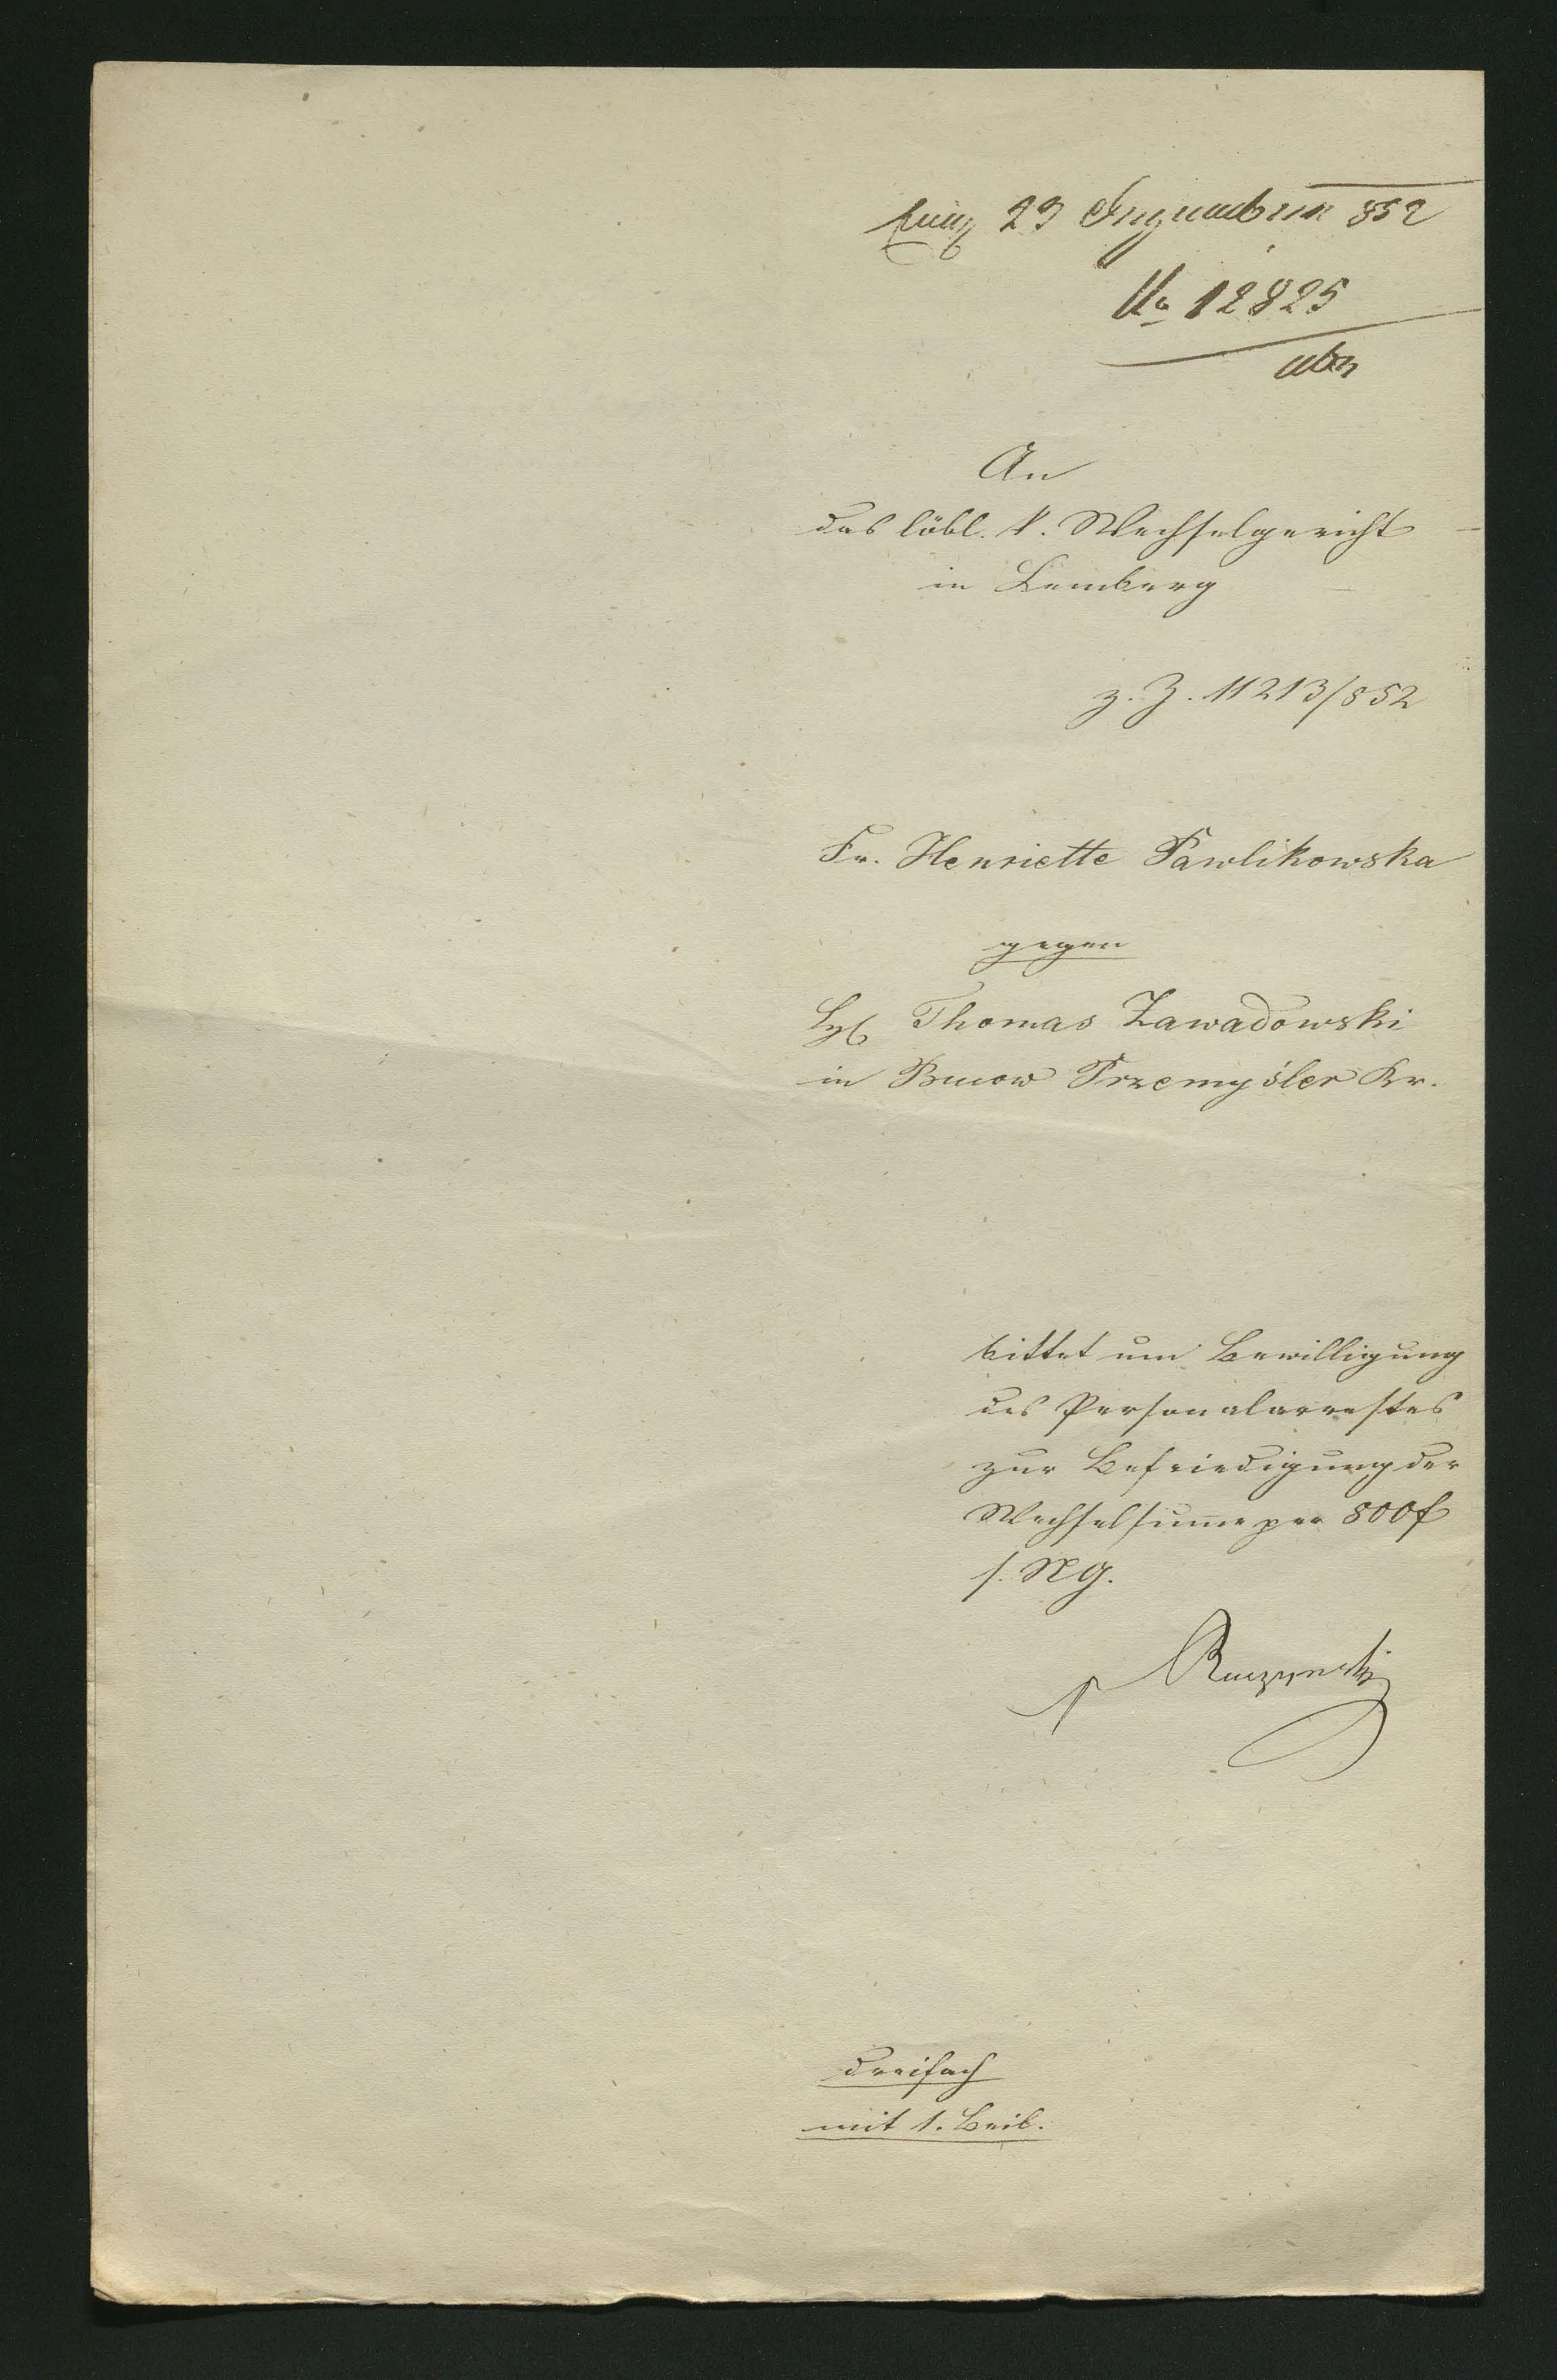 23 September 852
No 12825
An
das löbl. k. Wechselgericht
in Lemberg
z. Z. 11213/852
Fr. Henriette Pawlikowska
gegen
H. Thomas Zawadowski
in Przemyśler Kr.
bittet um Bewilligung
des Personalarrestes
zur Befriedigung der
Wechselsumme per 800f
s. NG.
dreifach
mit 1. Beil.